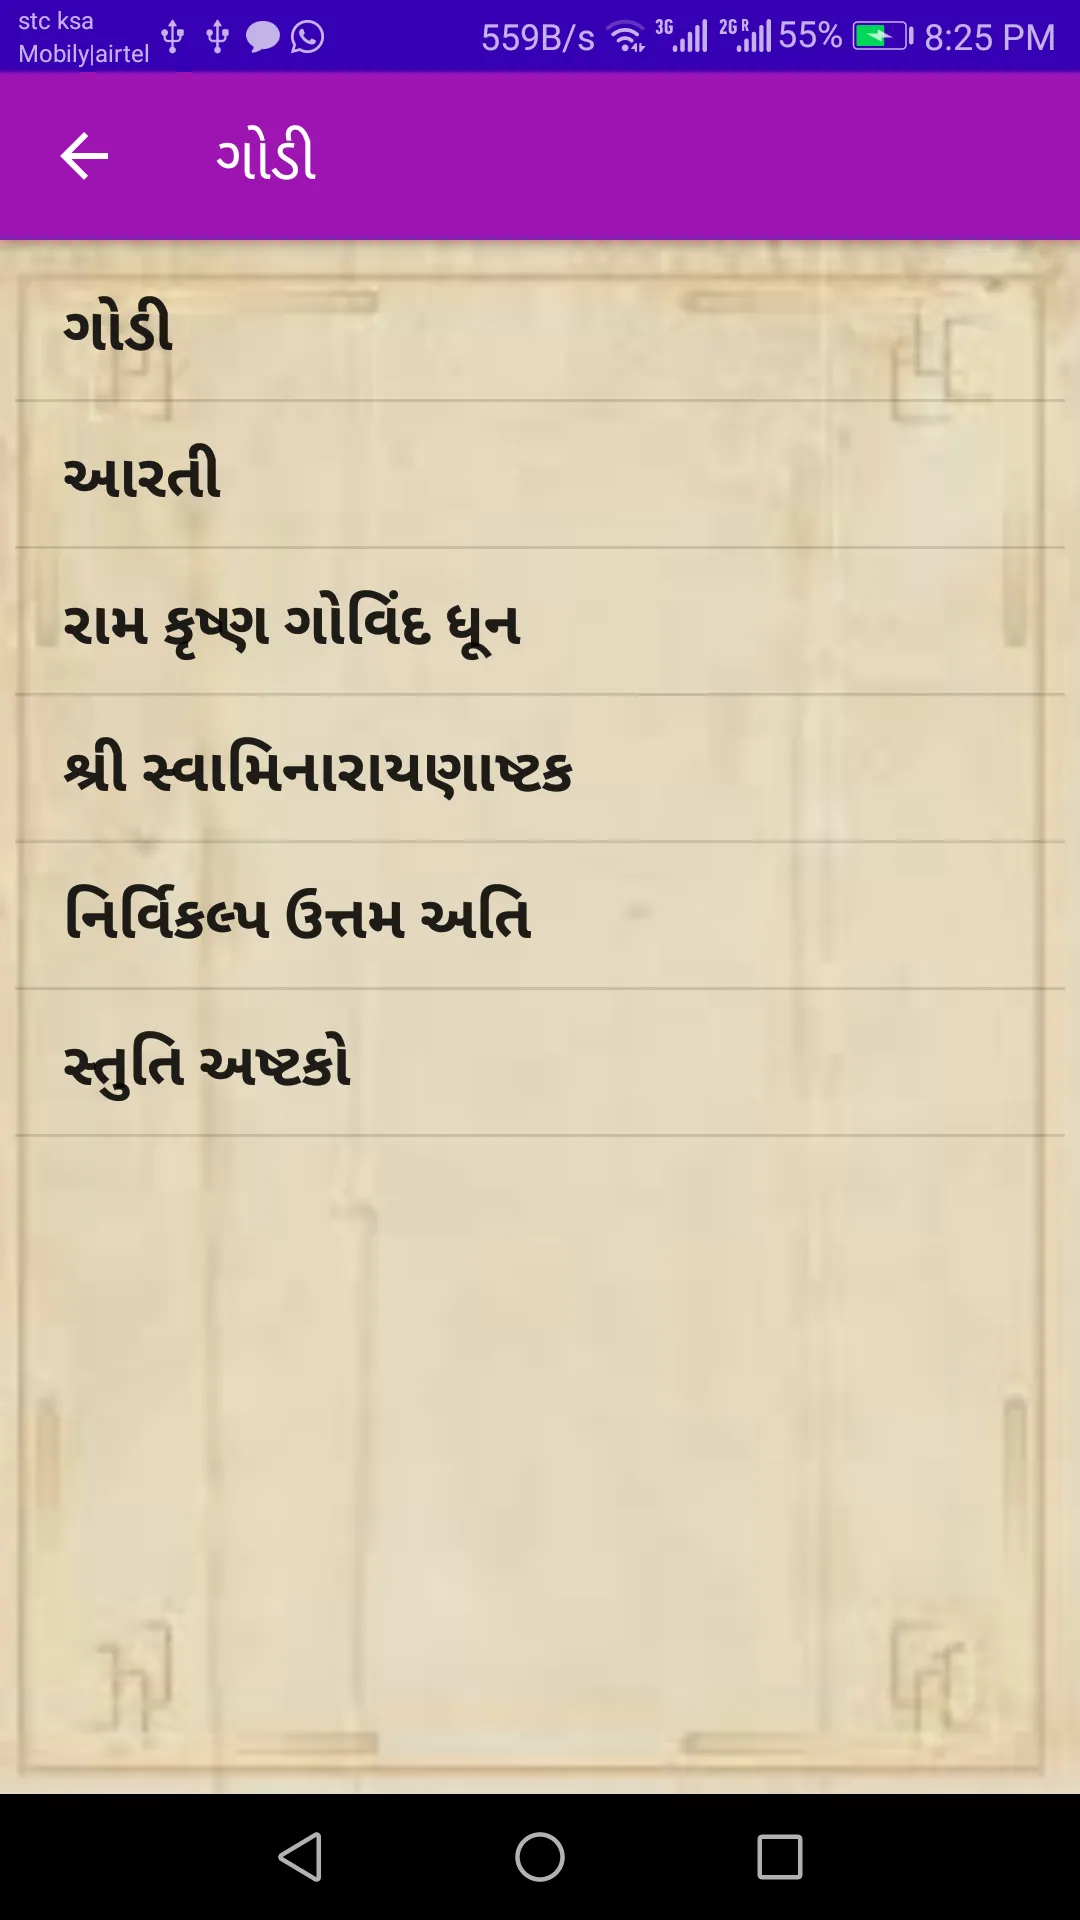 stc ksa
Mobily|airtel
559B/s 3G 2G R 55% 8:25 PM
ગોડી
ગોડી
આરતી
રામ કૃષ્ણ ગોવિંદ ધૂન
શ્રી સ્વામિનારાયણાષ્ટક
નિર્વિકલ્પ ઉત્તમ અતિ
સ્તુતિ અષ્ટકો